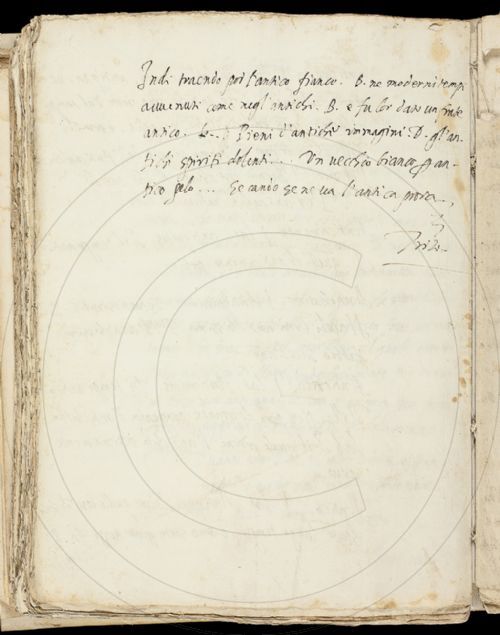 Indi traendo poi l'antico fianco. B. ne moderni tempi
avvenuti come negl'antichi. B. e fu lor dato un
antico. L... Pieni d'antiche immagini. D. gl'an-
tichi spiriti dolenti... Un vecchio bianco p an-
tico pelo... Secando se ne va l'antica prora.,